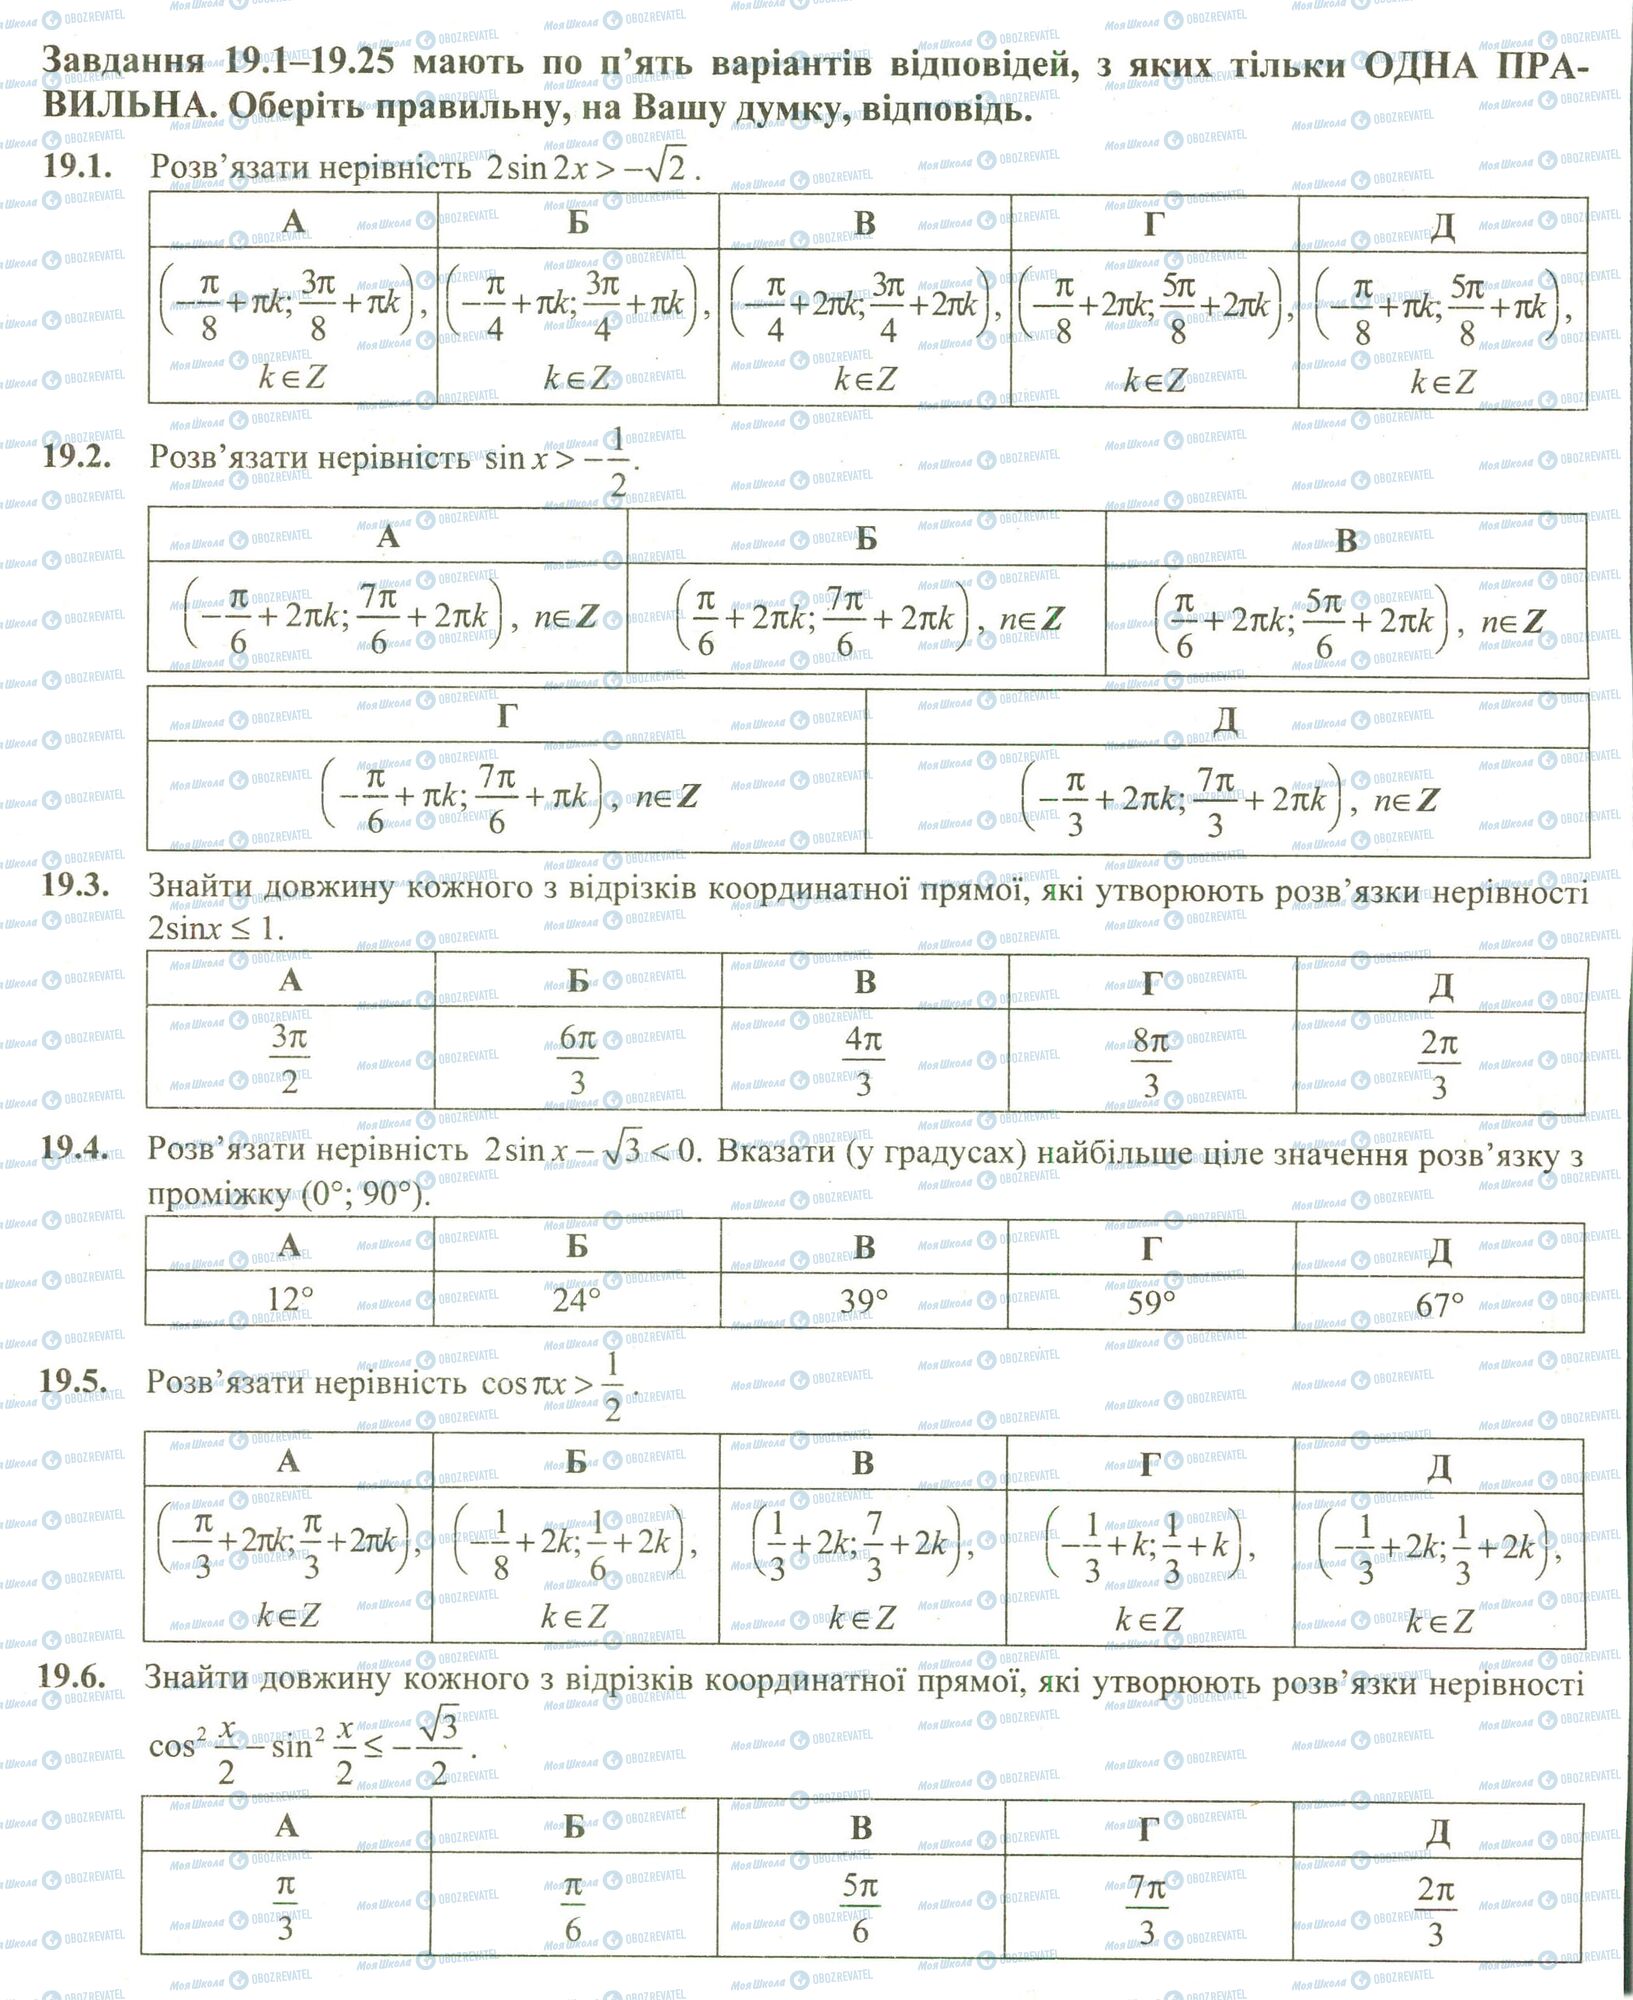 Завдання 19.1–19.25 мають по п’ять варіантів відповідей, з яких тільки ОДНА ПРА-
ВИЛЬНА. Оберіть правильну, на Вашу думку, відповідь.
19.1. Розв’язати нерівність 2 sin 2x > −√2 .
А Б В Г Д
(−π/8 + πk; 3π/8 + πk), (−π/4 + πk; 3π/4 + πk), (−π/4 + 2πk; 3π/4 + 2πk), (−π/8 + 2πk; 5π/8 + 2πk), (−π/8 + πk; 5π/8 + πk),
k∈Z k∈Z k∈Z k∈Z k∈Z
19.2. Розв’язати нерівність sin x > −1/2.
А Б В
(−π/6 + 2πk; 7π/6 + 2πk), n∈Z (π/6 + 2πk; 7π/6 + 2πk), n∈Z (π/6 + 2πk; 5π/6 + 2πk), n∈Z
Г Д
(−π/6 + πk; 7π/6 + πk), n∈Z (−π/3 + 2πk; 7π/3 + 2πk), n∈Z
19.3. Знайти довжину кожного з відрізків координатної прямої, які утворюють розв’язки нерівності
2sinx ≤ 1.
А Б В Г Д
3π/2 6π/3 4π/3 8π/3 2π/3
19.4. Розв’язати нерівність 2 sin x − √3 < 0. Вказати (у градусах) найбільше ціле значення розв’язку з
проміжку (0°; 90°).
А Б В Г Д
12° 24° 39° 59° 67°
19.5. Розв’язати нерівність cos πx > 1/2.
А Б В Г Д
(−π/3 + 2πk; π/3 + 2πk), (−1/8 + 2k; 1/6 + 2k), (1/3 + 2k; 7/3 + 2k), (−1/3 + k; 1/3 + k), (−1/3 + 2k; 1/3 + 2k),
k∈Z k∈Z k∈Z k∈Z k∈Z
19.6. Знайти довжину кожного з відрізків координатної прямої, які утворюють розв’язки нерівності
cos² x/2 − sin² x/2 ≤ −√3/2 .
А Б В Г Д
π/3 π/6 5π/6 7π/3 2π/3